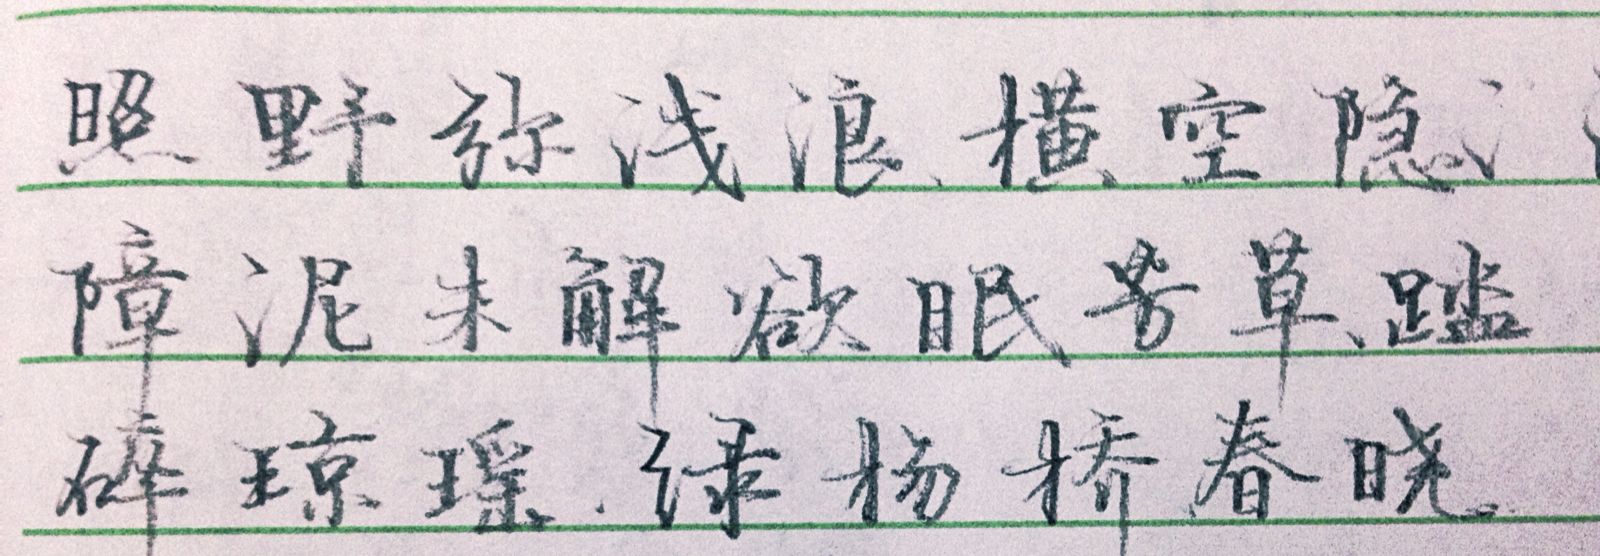 照野弥浅浪、横空隐
障泥未解欲眠芳草、踏
碎琼瑶.绿杨桥春晓.